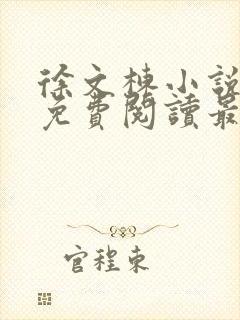 徐文棟小說
免費閱讀最
官程東